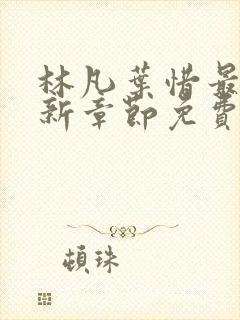 林凡葉惜最
新章節免費
頓珠